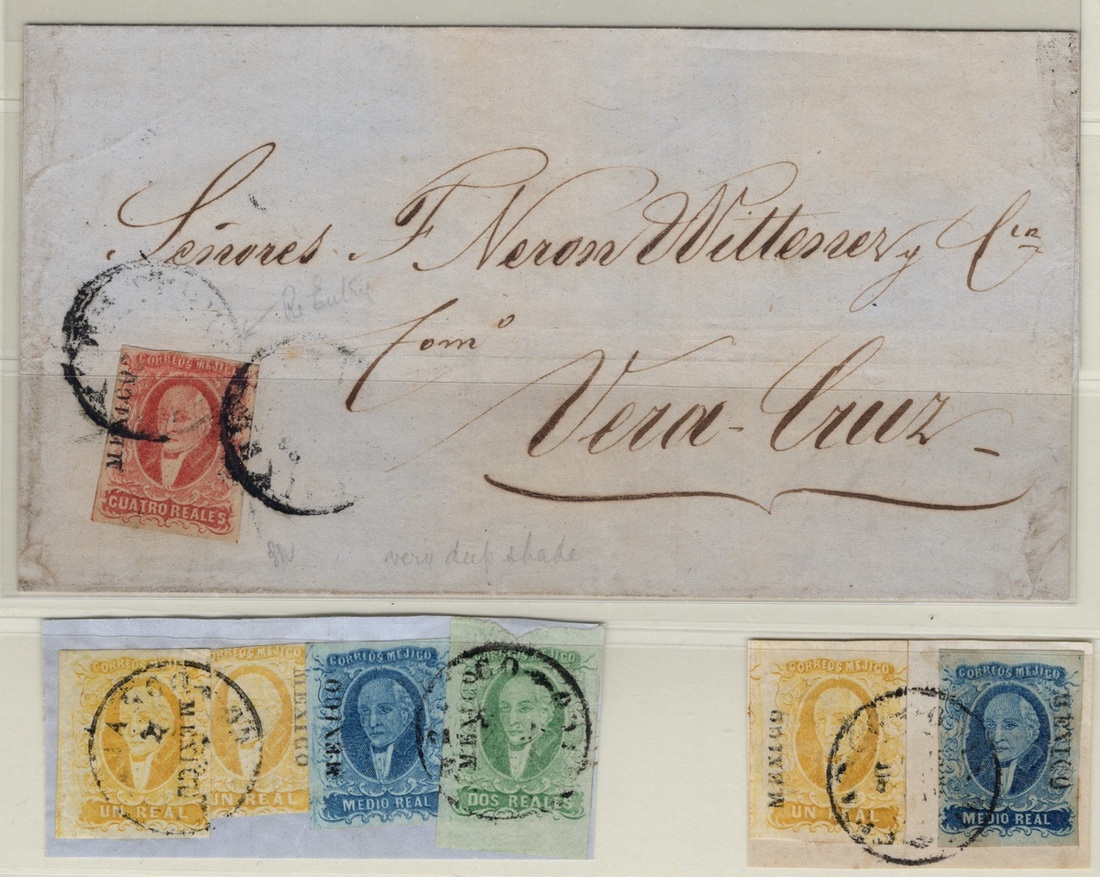 Señores F Neron Wittenez y Cia
Re Entry
Como
Vera-Cruz
CORREOS MEJICO
MEXICO
CUATRO REALES
very deep shade
CORREOS MEJICO
MEXICO
UN REAL
CORREOS MEJICO
MEXICO
UN REAL
CORREOS MEJICO
MEXICO
MEDIO REAL
CORREOS MEJICO
MEXICO
DOS REALES
MEXICO
CORREOS MEJICO
MEXICO
UN REAL
CORREOS MEJICO
MEXICO
MEDIO REAL